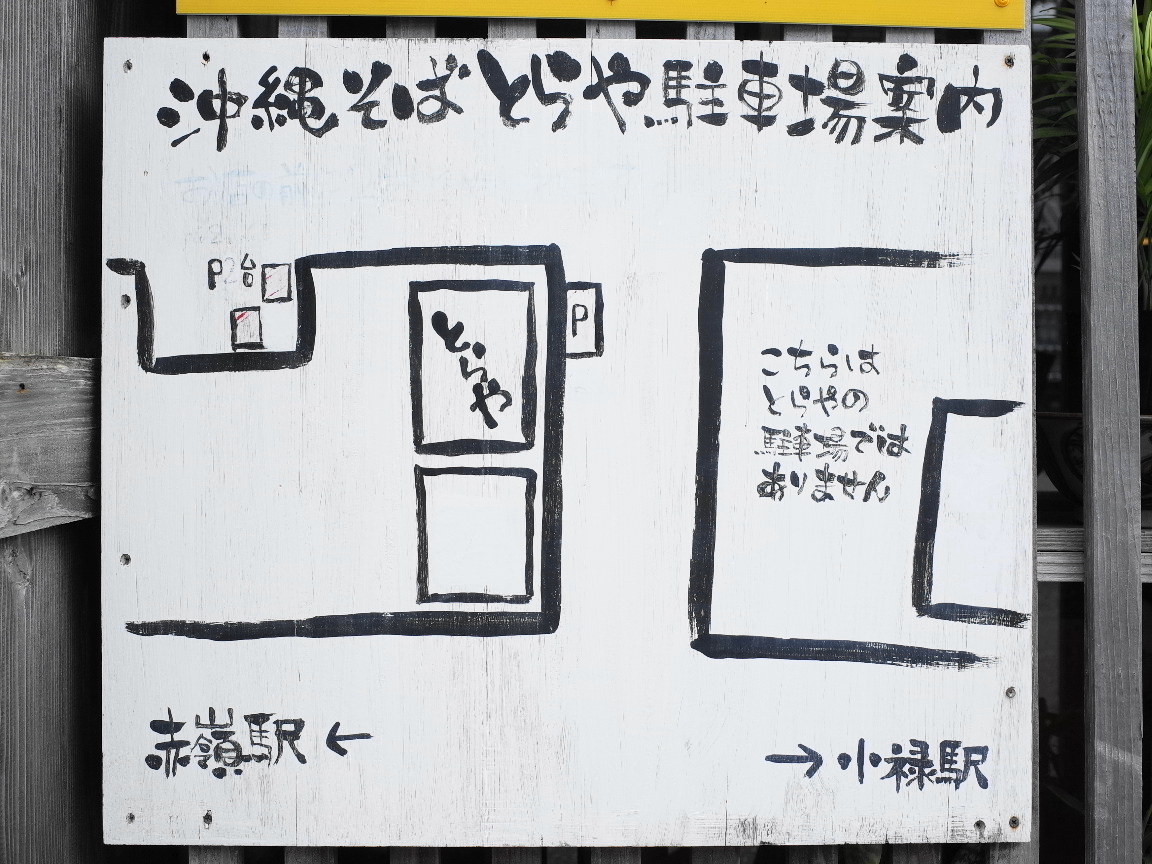 沖縄そばとらや駐車場案内
P2台
とらや
P
こちらは
とらやの
駐車場では
ありません
赤嶺駅 ←
→ 小禄駅